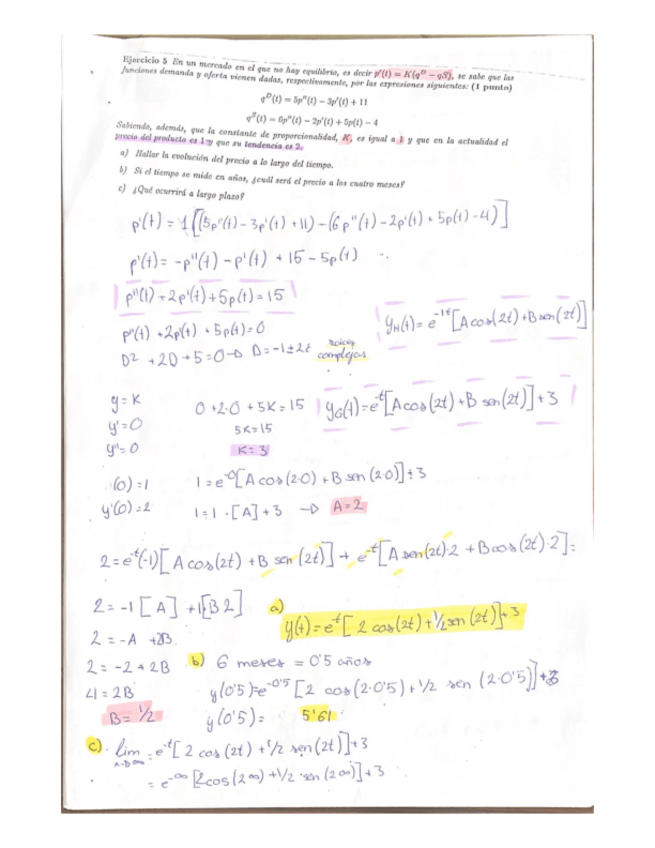 Ejercicio 5 En un mercado en el que no hay equilibrio, es decir p'(t) = K(q^D − qS), se sabe que las
funciones demanda y oferta vienen dadas, respectivamente, por las expresiones siguientes: (1 punto)
q^D(t) = 5p''(t) − 3p'(t) + 11
q^S(t) = 6p''(t) − 2p'(t) + 5p(t) − 4
Sabiendo, además, que la constante de proporcionalidad, K, es igual a 1 y que en la actualidad el
precio del producto es 1 y que su tendencia es 2.
a) Hallar la evolución del precio a lo largo del tiempo.
b) Si el tiempo se mide en años, ¿cuál será el precio a los cuatro meses?
c) ¿Qué ocurrirá a largo plazo?
p'(t) = 1[(5p''(t) - 3p'(t) + 11) - (6p''(t) - 2p'(t) + 5p(t) - 4)]
p'(t) = -p''(t) - p'(t) + 15 - 5p(t)
p''(t) + 2p'(t) + 5p(t) = 15
p''(t) + 2p'(t) + 5p(t) = 0
D² + 2D + 5 = 0 → D = -1 ± 2i raíces complejas
y_H(t) = e^-1t [A cos(2t) + B sen(2t)]
y = K 0 + 2·0 + 5K = 15 y_G(t) = e^-t [A cos(2t) + B sen(2t)] + 3
y' = 0 5K = 15
y'' = 0 K = 3
(0) = 1 1 = e^-0 [A cos(2·0) + B sen(2·0)] + 3
y'(0) = 2 1 = 1·[A] + 3 → A = 2
2 = e^-t(-1)[A cos(2t) + B sen(2t)] + e^-t[A sen(2t)·2 + B cos(2t)·2] =
2 = -1[A] + 1[B2] a)
y(t) = e^-t [2 cos(2t) + 1/2 sen(2t)] + 3
2 = -A + 2B
2 = -2 + 2B b) 6 meses = 0'5 años
4 = 2B y(0'5) = e^-0'5 [2 cos(2·0'5) + 1/2 sen(2·0'5)] + 3
B = 1/2 y(0'5) = 5'61
c). lim = e^-t [2 cos(2t) + 1/2 sen(2t)] + 3
= e^-∞ [2 cos(2∞) + 1/2 · sen(2∞)] + 3